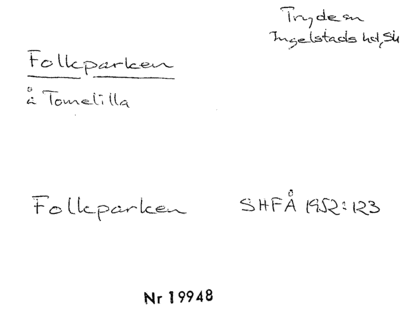 Tryde sn
Ingelstads hd, Sk
Folkparken
å Tomelilla
Folkparken SHFÅ 1952:123
Nr 19948